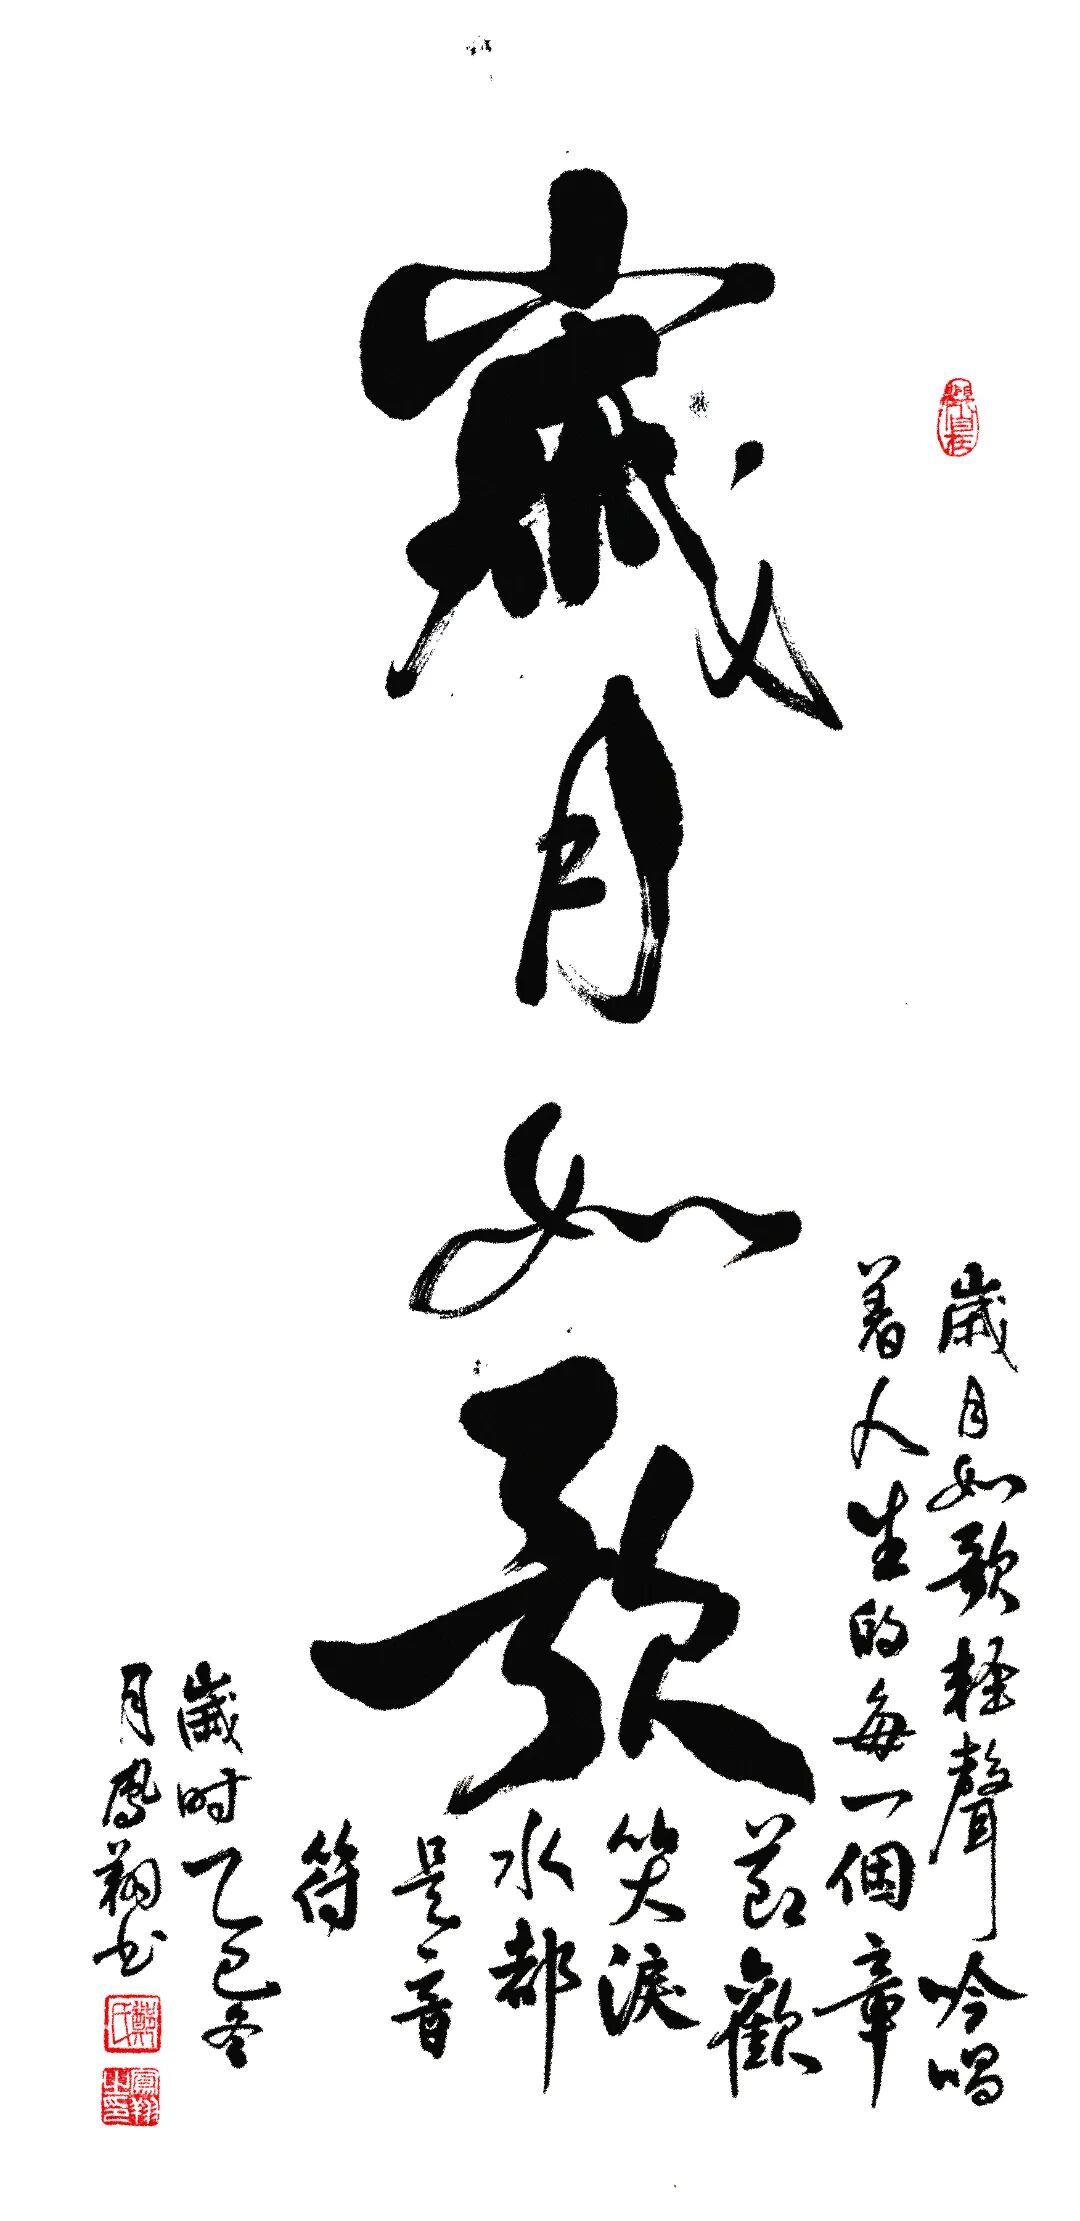 歲月如歌
歲月如歌輕聲吟唱
着人生的每一個章
節歡
笑淚
水都
是音
符
歲时乙巳冬
月鳳翔书
鄭氏